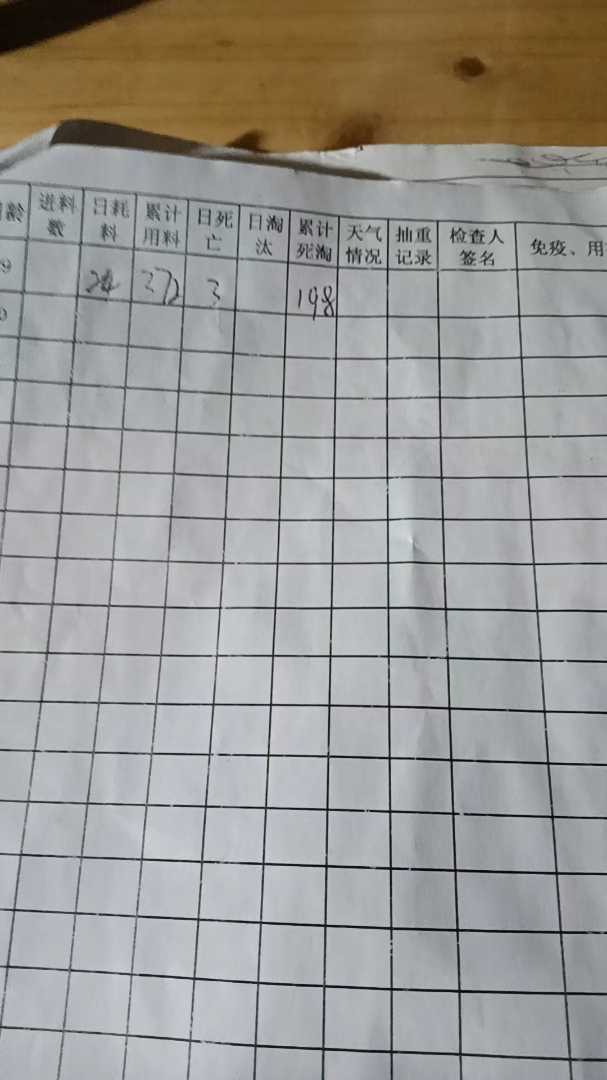 龄 进料数 日耗料 累计用料 日死亡 日淘汰 累计死淘 天气情况 抽重记录 检查人签名 免疫、用
9 24 372 3 198